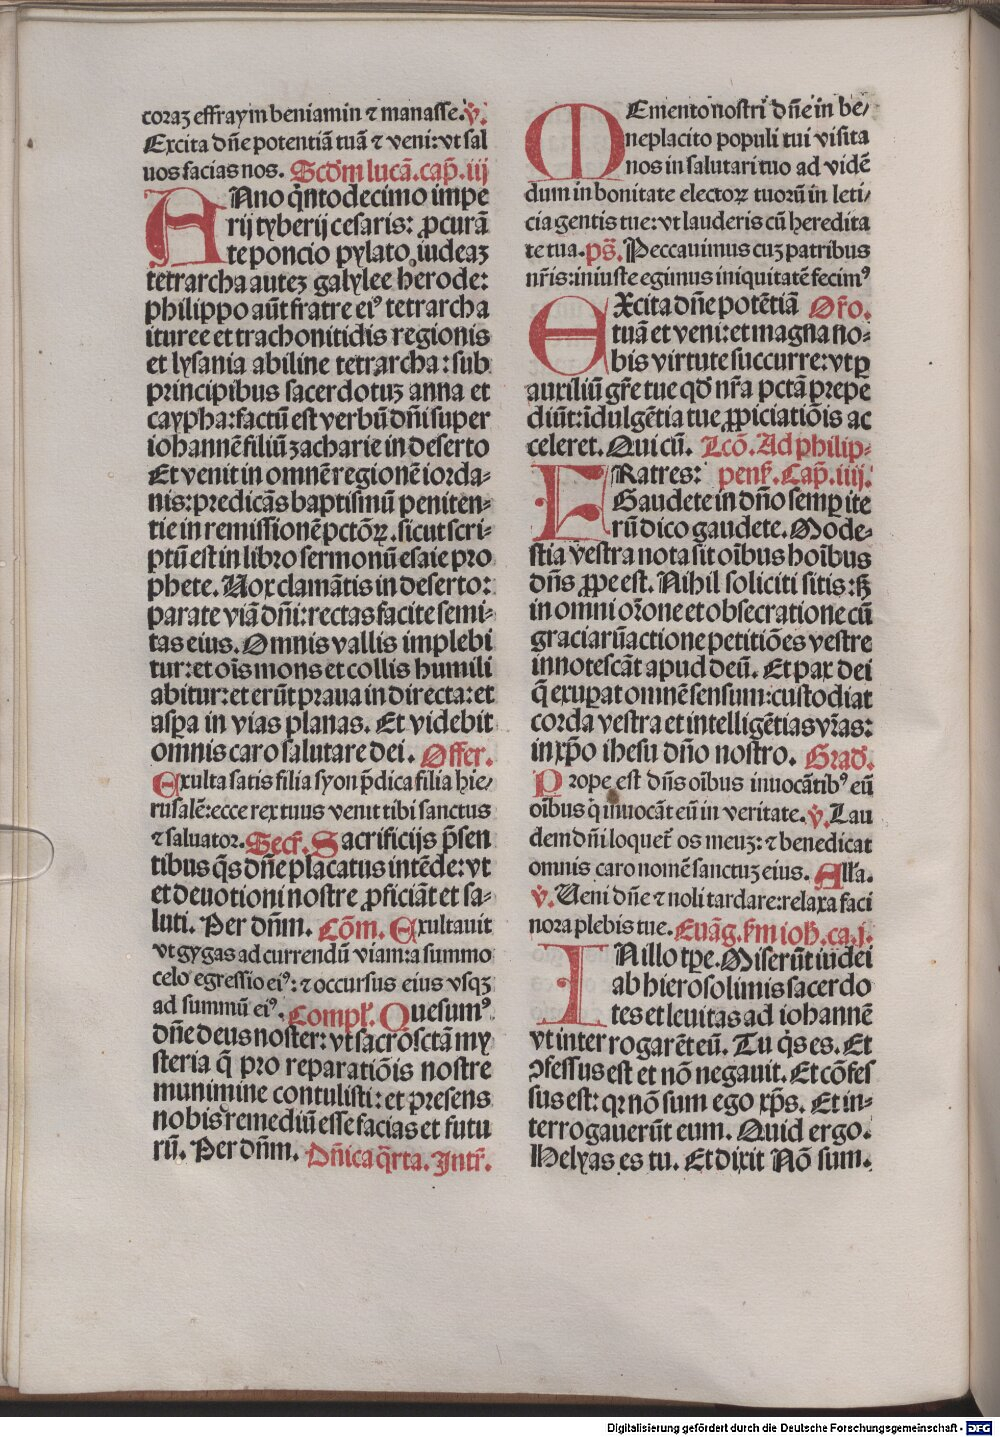 coraʒ effraym beniamin ⁊ manasse. v̾.
Excita dn̄e potentiā tuā ⁊ veni: vt sal
uos facias nos. Scd̄m lucā. cap̄. iij
ANno q̄ntodecimo impe
rij tyberij cesaris: ꝓcurā
te poncio pylato iudeaʒ
tetrarcha auteʒ galylee herode:
philippo aūt fratre ei⁹ tetrarcha
ituree et trachonitidis regionis
et lysania abiline tetrarcha: sub
principibus sacerdotuʒ anna et
caypha: factū est verbū dn̄i super
iohannē filiū zacharie in deserto
Et venit in omnē regionē iorda-
nis: predicās baptismū peniten-
tie in remissionē pctōꝝ. sicut scri-
ptū est in libro sermonū esaie pro
phete. Vox clamātis in deserto:
parate viā dn̄i: rectas facite semi-
tas eius. Omnis vallis implebi
tur: et oīs mons et collis humili
abitur: et erūt praua in directa: et
asꝑa in vias planas. Et videbit
omnis caro salutare dei. Offer.
Exulta satis filia syon p̄dica filia hie-
rusalē: ecce rex tuus venit tibi sanctus
⁊ saluator. Secr̄. Sacrificijs p̄sen
tibus q̄s dn̄e placatus intēde: vt
et deuotioni nostre ꝓficiāt et sa-
luti. Per dn̄m. Cōm. Exultauit
vt gygas ad currendū viam: a summo
celo egressio ei⁹: ⁊ occursus eius vsqʒ
ad summū ei⁹. Compl̄. Quesum⁹
dn̄e deus noster: vt sacrosctā my
steria q̄ pro reparatiōis nostre
munimine contulisti: et presens
nobis remediū esse facias et futu
rū. Per dn̄m. Dn̄ica q̄rta. Intr̄.
MEmento nostri dn̄e in be-
neplacito populi tui visita
nos in salutari tuo ad vidē
dum in bonitate electoꝝ tuorū in leti-
cia gentis tue: vt lauderis cū heredita
te tua. ps̄. Peccauimus cuʒ patribus
nr̄is: iniuste egimus iniquitatē fecim⁹
EXcita dn̄e potētiā Or̄o.
tuā et veni: et magna no-
bis virtute succurre: vt ꝑ
auxiliū gr̄e tue qd̄ nr̄a pctā prepe
diūt: īdulgētia tue ꝓpiciatiōis ac
celeret. Qui cū. Lcō. Ad philip-
FRatres: penẜ. Cap̄. iiij.
Gaudete in dn̄o semꝑ ite
rū dico gaudete. Mode-
stia vestra nota sit oībus hoībus
dn̄s ꝓpe est. Nihil soliciti sitis: sꝫ
in omni or̄one et obsecratione cū
graciarū actione petitiōes vestre
innotescāt apud deū. Et pax dei
q̄ exuꝑat omnē sensum: custodiat
corda vestra et intelligētias vr̄as:
in xp̄o ihesu dn̄o nostro. Grad̄.
Prope est dn̄s oībus inuocātib⁹ eū
oībus q̇ inuocāt eū in veritate. v̾. Lau
dem dn̄i loquet̄ os meuʒ: ⁊ benedicat
omnis caro nomē sanctuʒ eius. Alla.
v̾. Veni dn̄e ⁊ noli tardare: relaxa faci
nora plebis tue. Euāg. ẜm ioh̄. ca. j.
IN illo tp̄e. Miserūt iudei
ab hierosolimis sacerdo
tes et leuitas ad iohannē
vt interrogarēt eū. Tu q̇s es. Et
ↄfessus est et nō negauit. Et cōfes
sus est: qꝛ nō sum ego xp̄s. Et in-
terrogauerūt eum. Quid ergo.
Helyas es tu. Et dixit Nō sum.
Digitalisierung gefördert durch die Deutsche Forschungsgemeinschaft - DFG